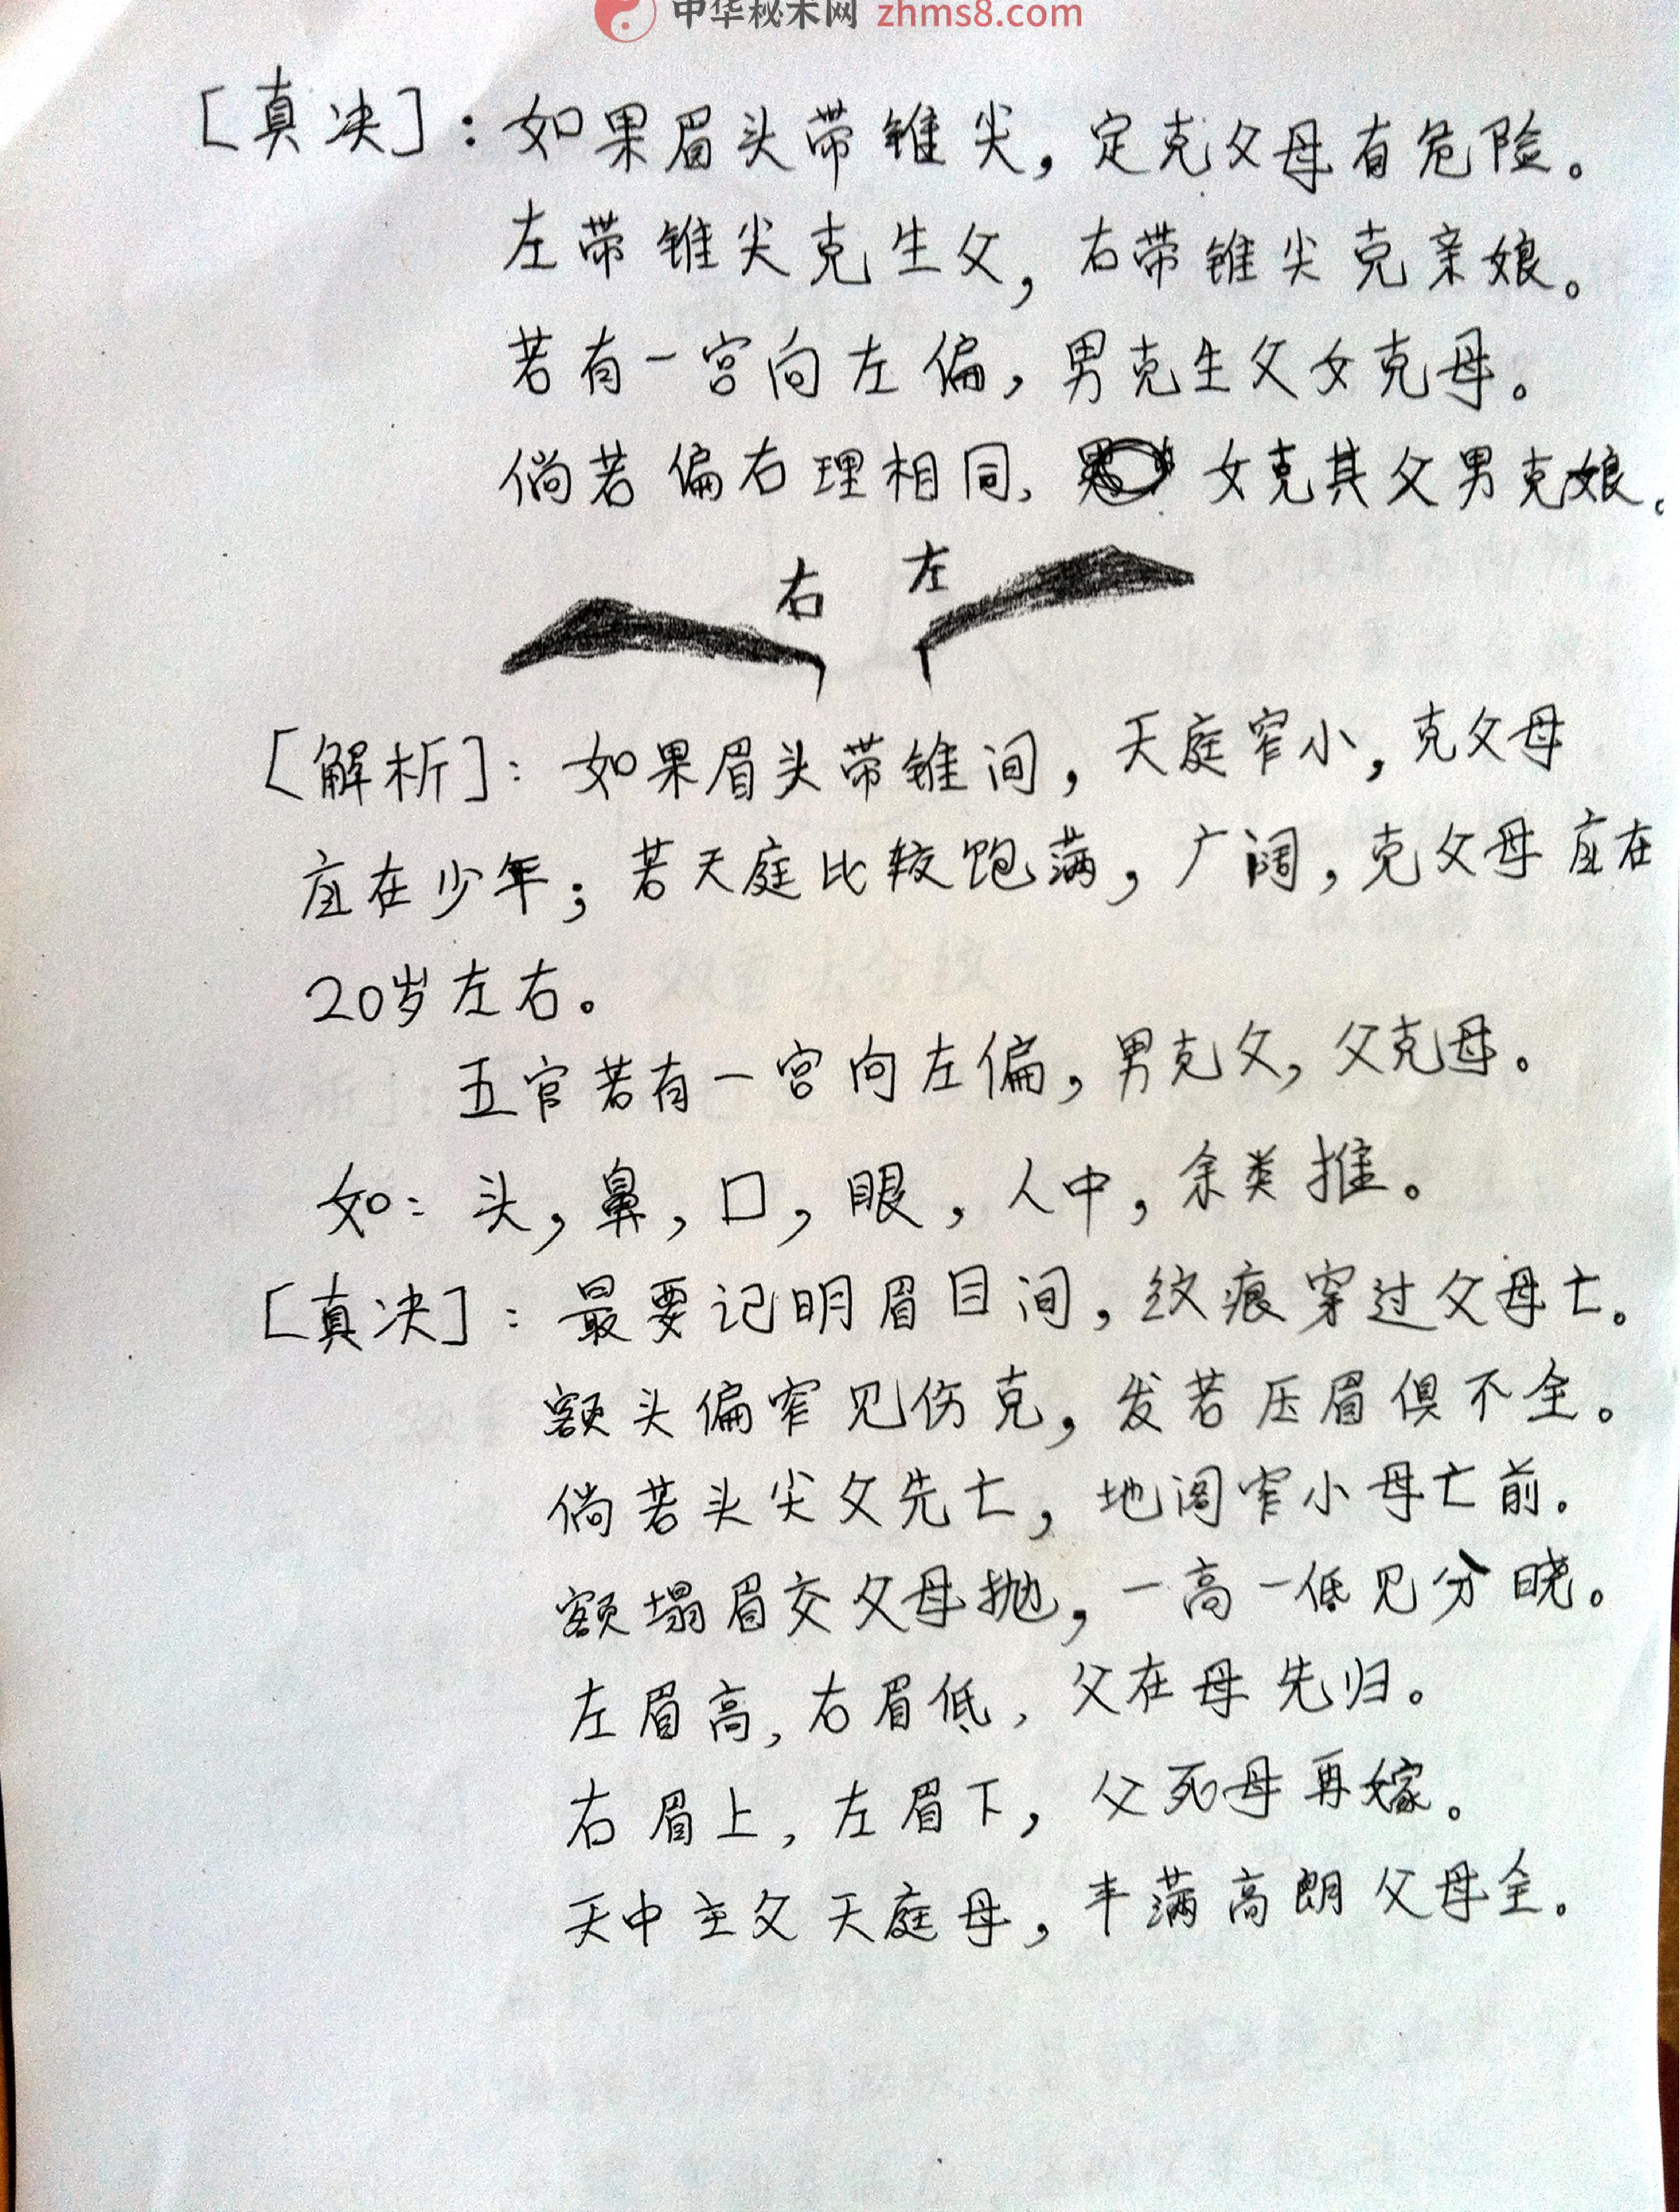 中华秘术网 zhms8.com
[真决]：如果眉头带锥尖，定克父母有危险。
左带锥尖克生父，右带锥尖克亲娘。
若有一宫向左偏，男克生父女克母。
倘若偏右理相同，女克其父男克娘。
右 左
[解析]：如果眉头带锥间，天庭窄小，克父母
应在少年；若天庭比较饱满，广阔，克父母应在
20岁左右。
五官若有一宫向左偏，男克父，父克母。
如：头，鼻，口，眼，人中，余类推。
[真决]：最要记明眉目间，纹痕穿过父母亡。
额头偏窄见伤克，发若压眉俱不全。
倘若头尖父先亡，地阁窄小母亡前。
额塌眉交父母抛，一高一低见分晓。
左眉高，右眉低，父在母先归。
右眉上，左眉下，父死母再嫁。
天中主父天庭母，丰满高朗父母全。